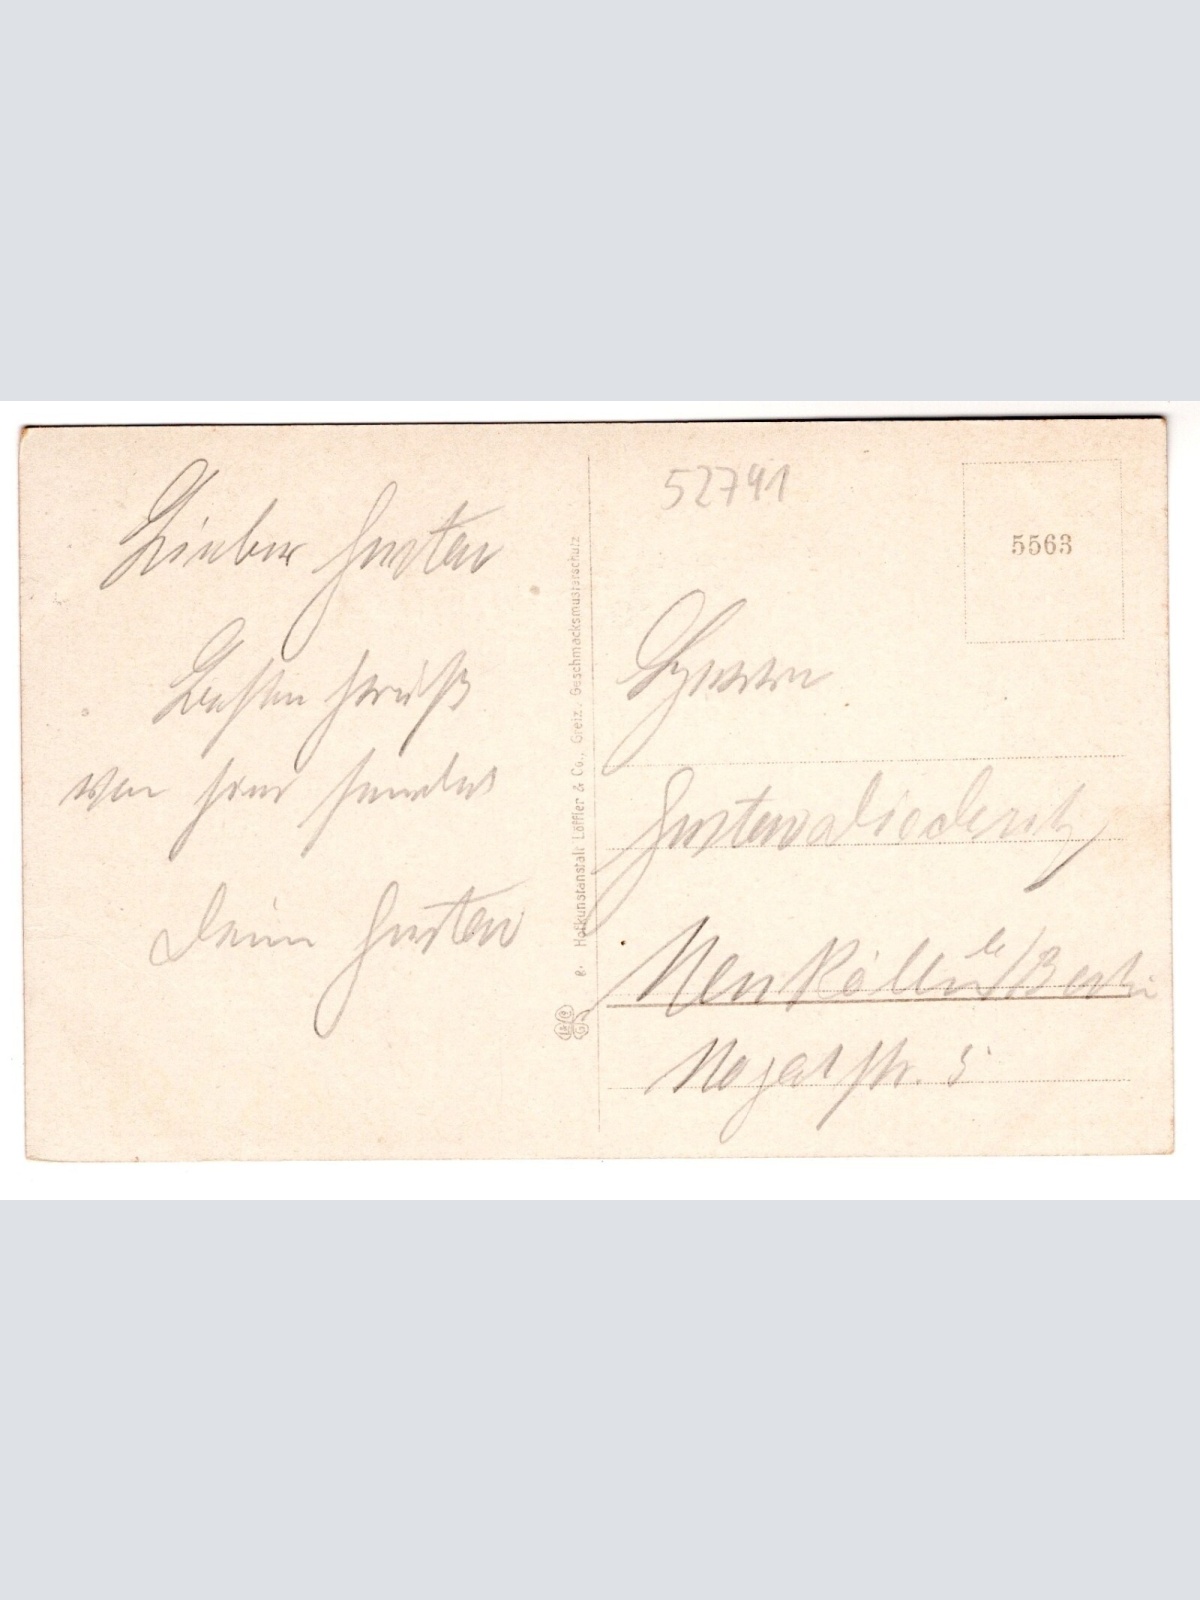 Lieber Gustav
Besten Gruß
von
Dein Gustav
8. Hofkunstanstalt Löffler & Co., Greiz. Geschmacksmusterschutz
52741
5563
Herrn
Gustav Diederich
Neu Kölln b/Berlin
Nogatstr. 5